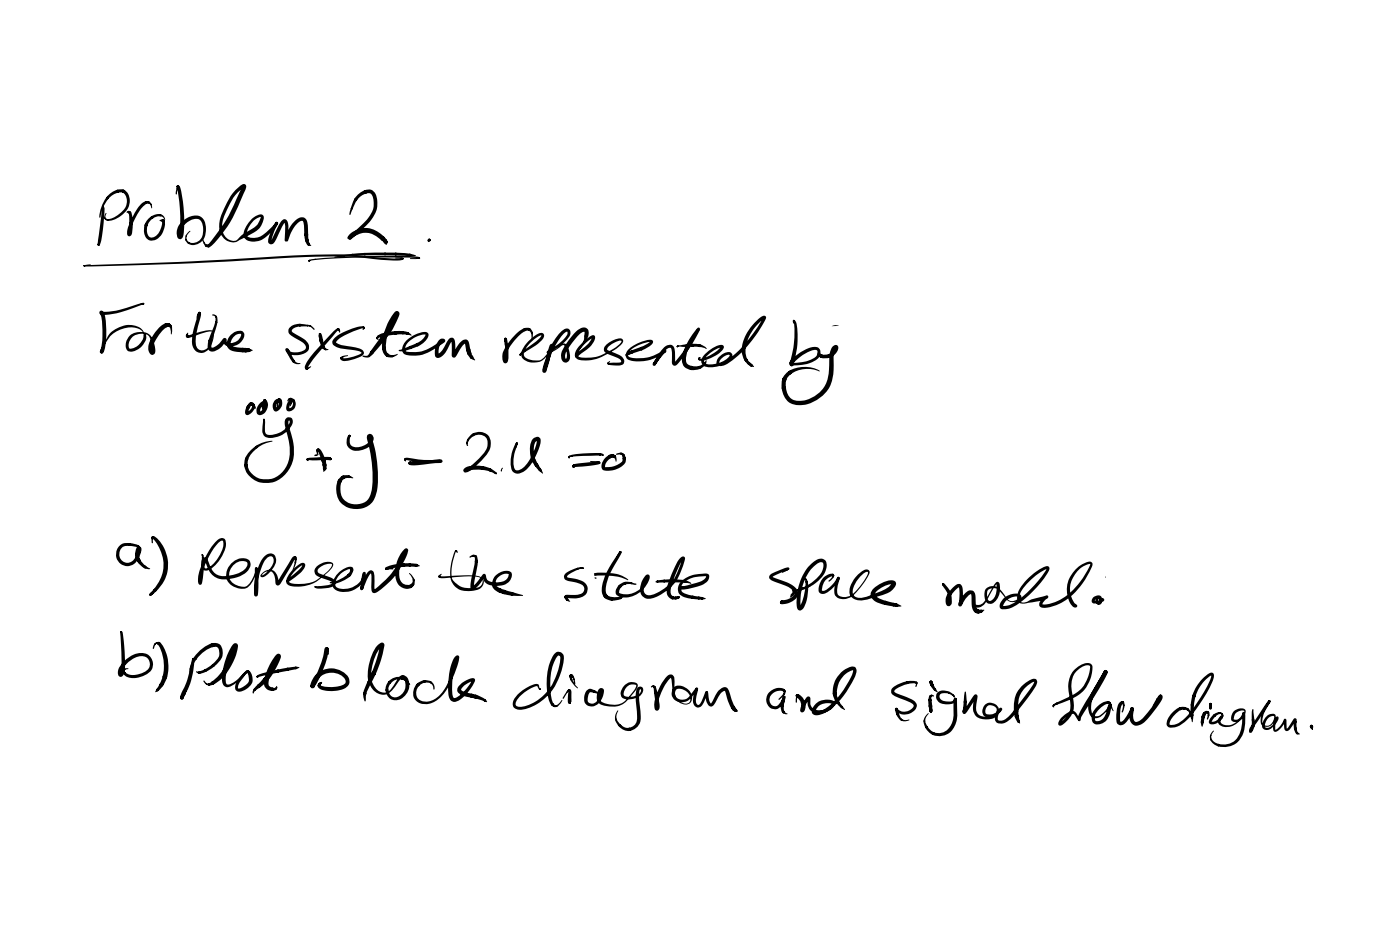 Problem 2.
For the system represented by
y⃜ + y - 2.u = 0
a) Represent the state space model.
b) Plot block diagram and signal flow diagram.